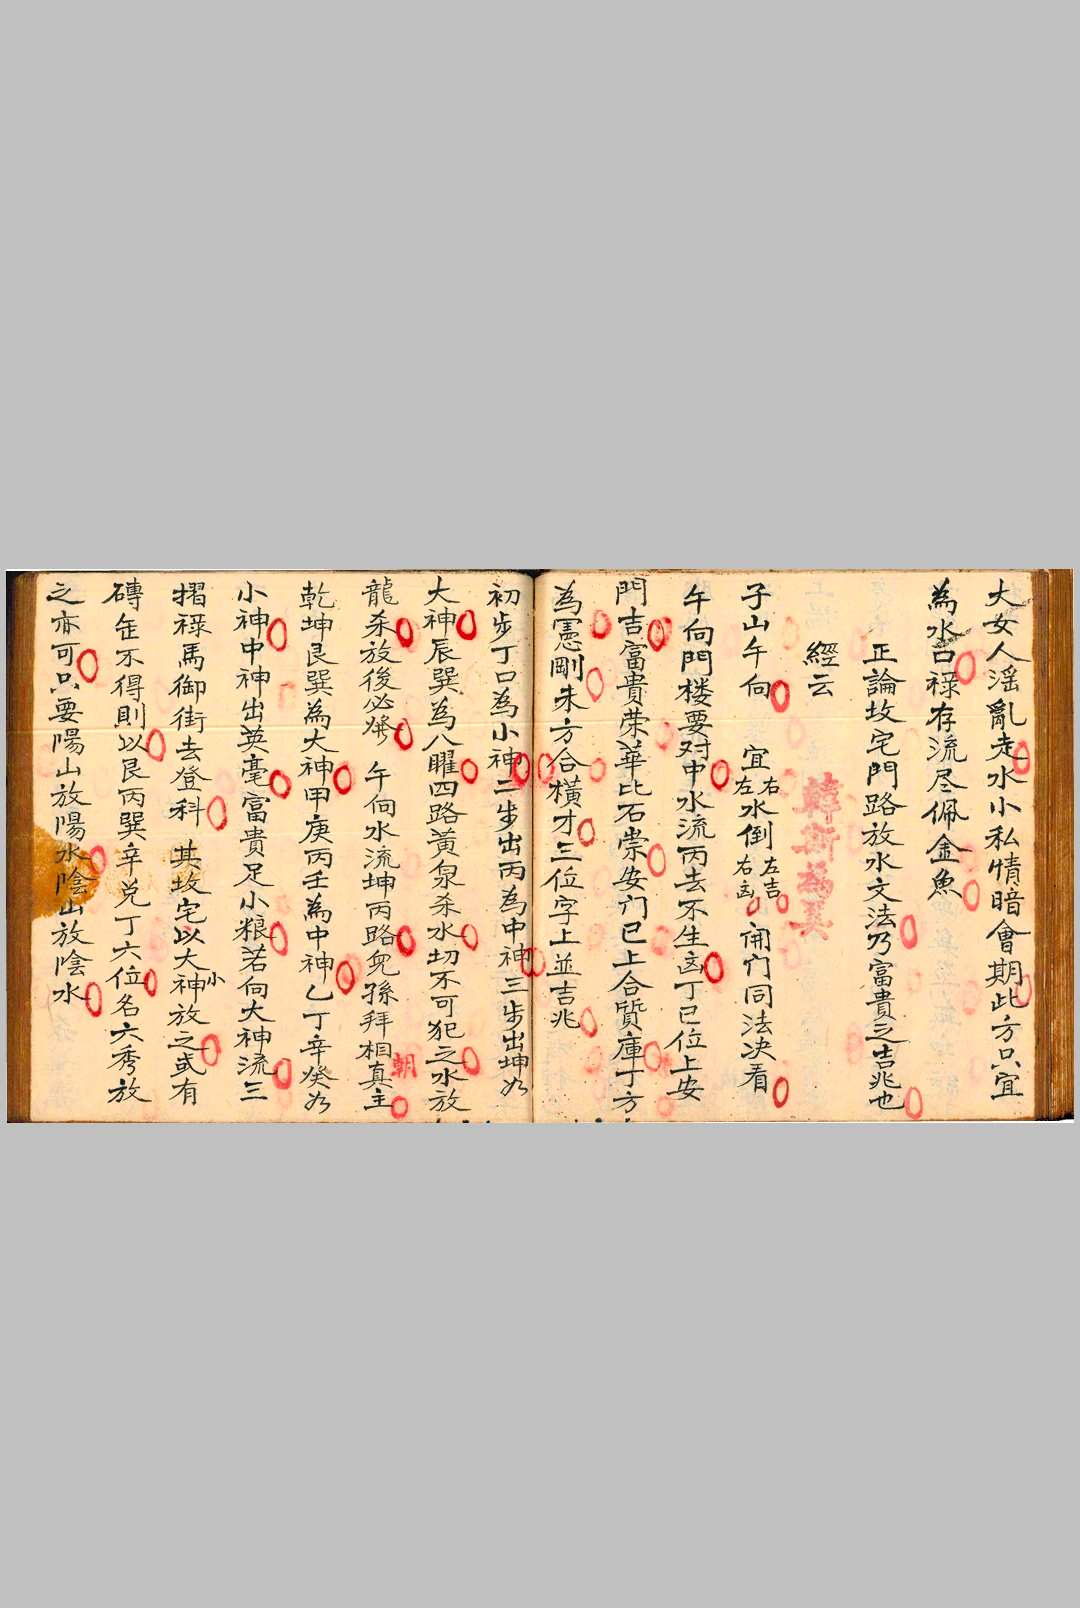 大女人滛亂走水小私情暗會期此方只宜
為水口禄存流尽佩金魚
正論坟宅門路放水文法乃富貴之吉兆也
經云
子山午向 宜右左水倒左吉右凶 開门同法决看
午向門楼要对中水流丙去不生凶丁巳位上安
門吉富貴荣華比石崇安门巳上合質庫丁方
為憲剛未方合横才三位字上並吉兆
初步丁口為小神二步出丙為中神三步出坤为
大神辰巽為八曜四路黃泉杀水切不可犯之水放
龍杀放後必发 午向水流坤丙路兒孫拜相真主
朝
乾坤艮巽為大神甲庚丙壬為中神乙丁辛癸为
小神中神出英毫富貴足小粮若向大神流三
摺禄馬御街去登科 其坟宅以大小神放之或有
磚缶不得則以艮丙巽辛兑丁六位名六秀放
之亦可只要陽山放陽水陰山放陰水